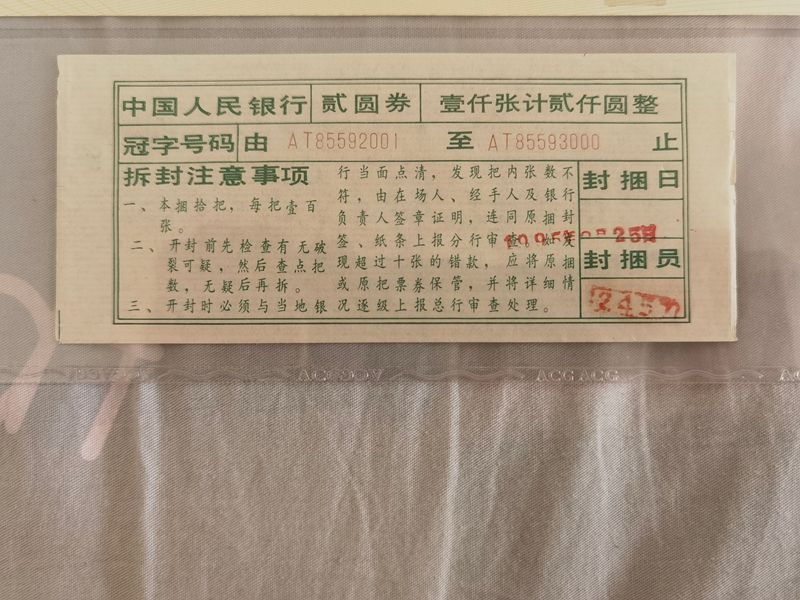 中国人民银行 贰圆券 壹仟张计贰仟圆整
冠字号码 由 AT85592001 至 AT85593000 止
拆封注意事项
一、本捆拾把，每把壹百
张。
二、开封前先检查有无破
裂可疑，然后查点把
数，无疑后再拆。
三、开封时必须与当地银
行当面点清，发现把内张数不
符，由在场人、经手人及银行
负责人签章证明，连同原捆封
签、纸条上报分行审查。如发
现超过十张的错款，应将原捆
或原把票券保管，并将详细情
况逐级上报总行审查处理。
封捆日
封捆员
ACG ACG